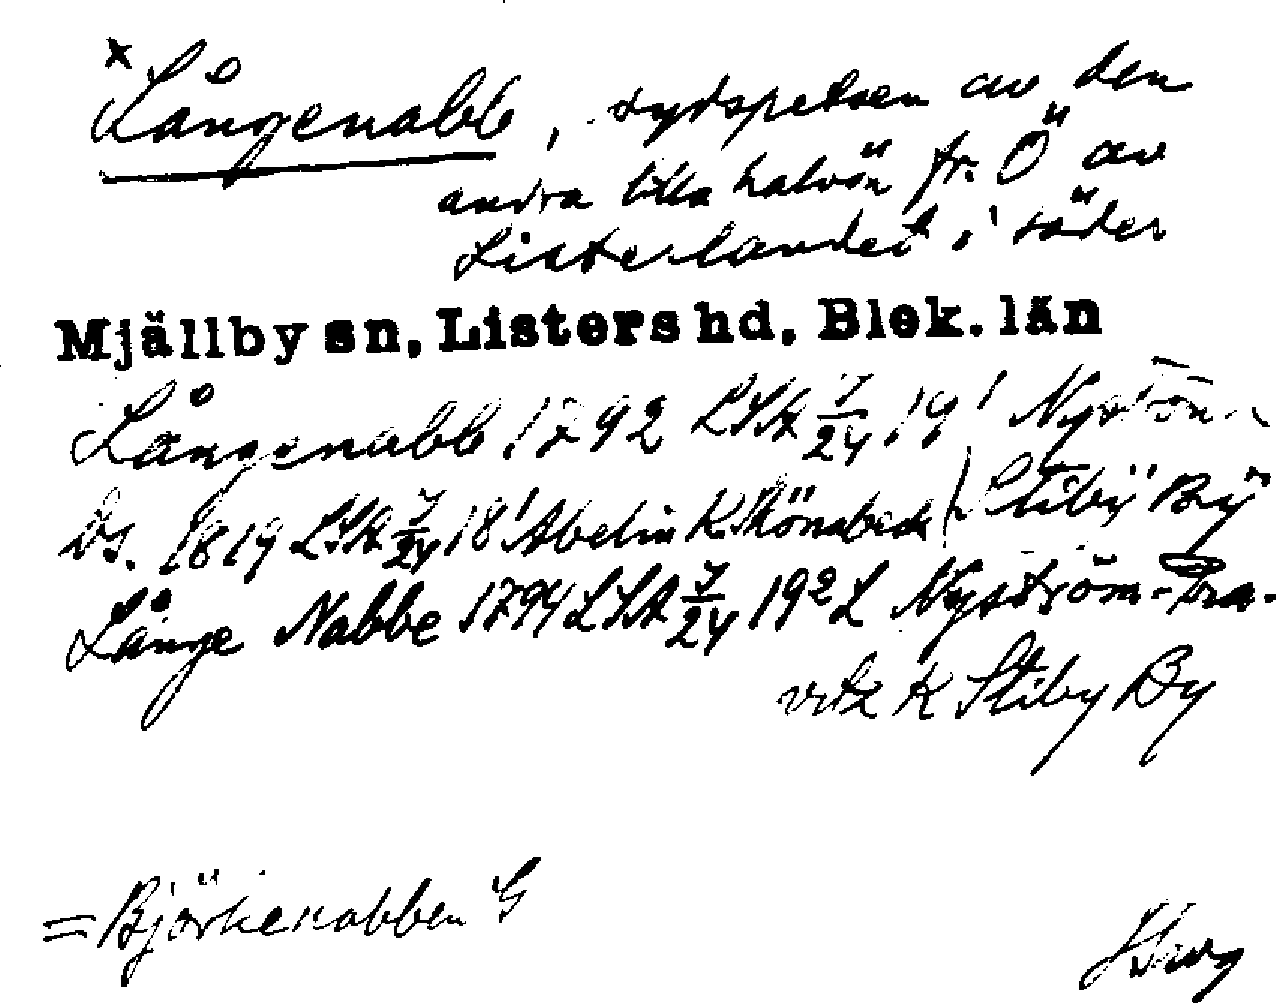 x Långenabb, sydspetsen av den
andra lilla halvön fr. Ö av
Listerlandet i söder
Mjällby sn, Listers hd, Blek. län
Långenabb 1792 LSA 7/24 19¹ Nyström
Ds. 1819 LSA 7/24 18¹ Abelin K Hönsbeck Stiby By
Långe Nabbe 1794 LSA 7/24 19² L Nyström-Pra-
vitz K Stiby By
=Björkenabben G